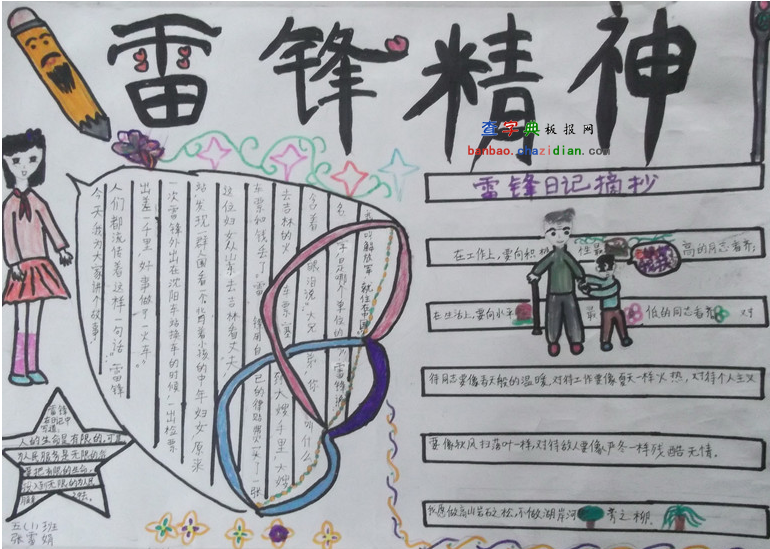 雷锋精神
查字典板报网
banbao.chazidian.com
雷锋日记摘抄
在工作上,要向积极
性最
高的同志看齐,
在生活上,要向水平
最
低的同志看齐
对
待同志要像春天般的温暖,对待工作要像夏天一样火热,对待个人主义
要像秋风扫落叶一样,对待敌人要像严冬一样残酷无情。
我愿做高山岩石之松,不做湖岸河
旁之柳。
今天我为大家讲个故事
人们都流传着这样一句话“雷锋
出差一千里,好事做了一火车”
一次雷锋外出在沈阳车站换车的时候,一出检票
站,发现一群人围着一个背着小孩的中年妇女,原来
这位妇女从山东去吉林看丈夫
车票和钱丢了
自己的津贴费买了一张
去吉林的火车票塞
到大嫂手里,大嫂
含着
眼泪说:“大兄弟,你
叫什么
名字,是哪个单位的
我叫解放军,就住在中国
雷锋
在日记中
写道:
人的生命是有限的,可是
为人民服务是无限的,我
要把有限的生命,
投入到无限的为人民
服务之中去。
五(1)班
张雪娟